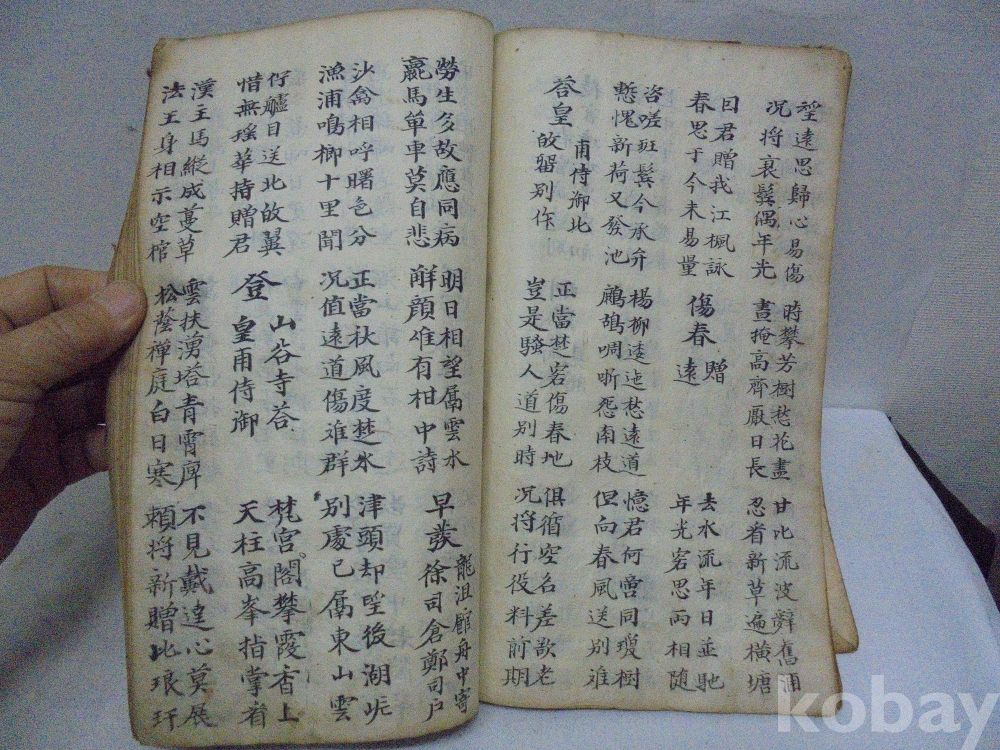 望遠思歸心易傷
况將衰鬂偶年光
時攀芳樹愁花盡
晝掩高齊厭日長
甘比流波辭舊浦
忍看新草遍橫塘
因君贈我江楓詠
春思于今未易量
傷春贈遠
去水流年日並馳
年光客思兩相隨
咨嗟斑鬂今承弁
慙愧新荷又發池
楊柳逶迤愁遠道
鷓鴣啁哳怨南枝
憶君何啻同瓊樹
但向春風送別難
荅皇甫侍御北歸留別作
正當楚客傷春地
豈是騷人道別時
俱徇空名差欲老
况將行役料前期
勞生多故應同病
羸馬單車莫自悲
明日相望屬雲水
解顔唯有袖中詩
早發龍沮館舟中寄徐司倉鄭司戶
沙禽相呼曙色分
漁浦鳴榔十里聞
正當秋風度楚水
况值遠道傷離群
津頭却望後湖岸
別處已屬東山雲
佇艫目送北歸翼
惜無瑤華持贈君
登山谷寺荅皇甫侍御
梵宮閣攀霞香上
天柱高峯指掌看
漢主馬縱成蔓草
法王身相示空棺
雲扶湧塔青霄庳
松蔭禪庭白日寒
不見戴逵心莫展
賴將新贈比琅玕
kobay